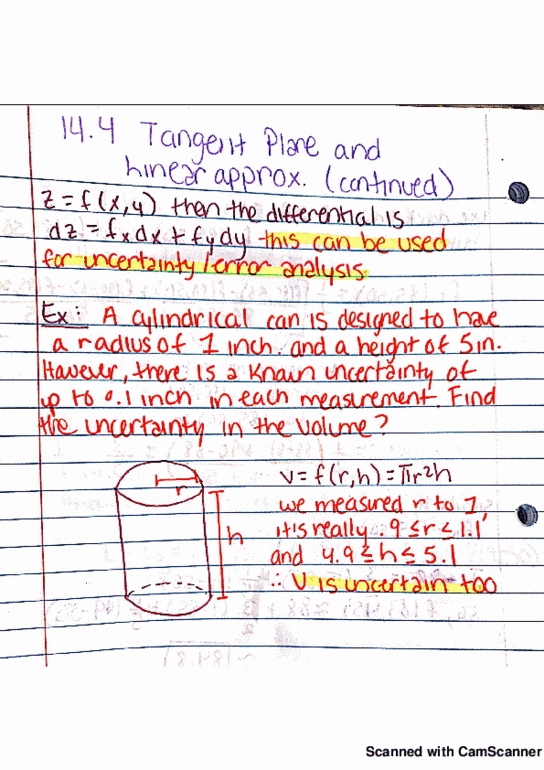 14.4 Tangent Plane and
Linear approx. (continued)
z = f(x,y) then the differential is
dz = fxdx + fydy this can be used
for uncertainty/error analysis.
Ex: A cylindrical can is designed to have
a radius of 1 inch. and a height of 5in.
However, there is a known uncertainty of
up to 0.1 inch in each measurement. Find
the uncertainty in the volume?
V = f(r,h) = πr²h
r
we measured r to 1,
it is really .9 ≤ r ≤ 1.1
h
and 4.9 ≤ h ≤ 5.1
∴ V is uncertain too
Scanned with CamScanner